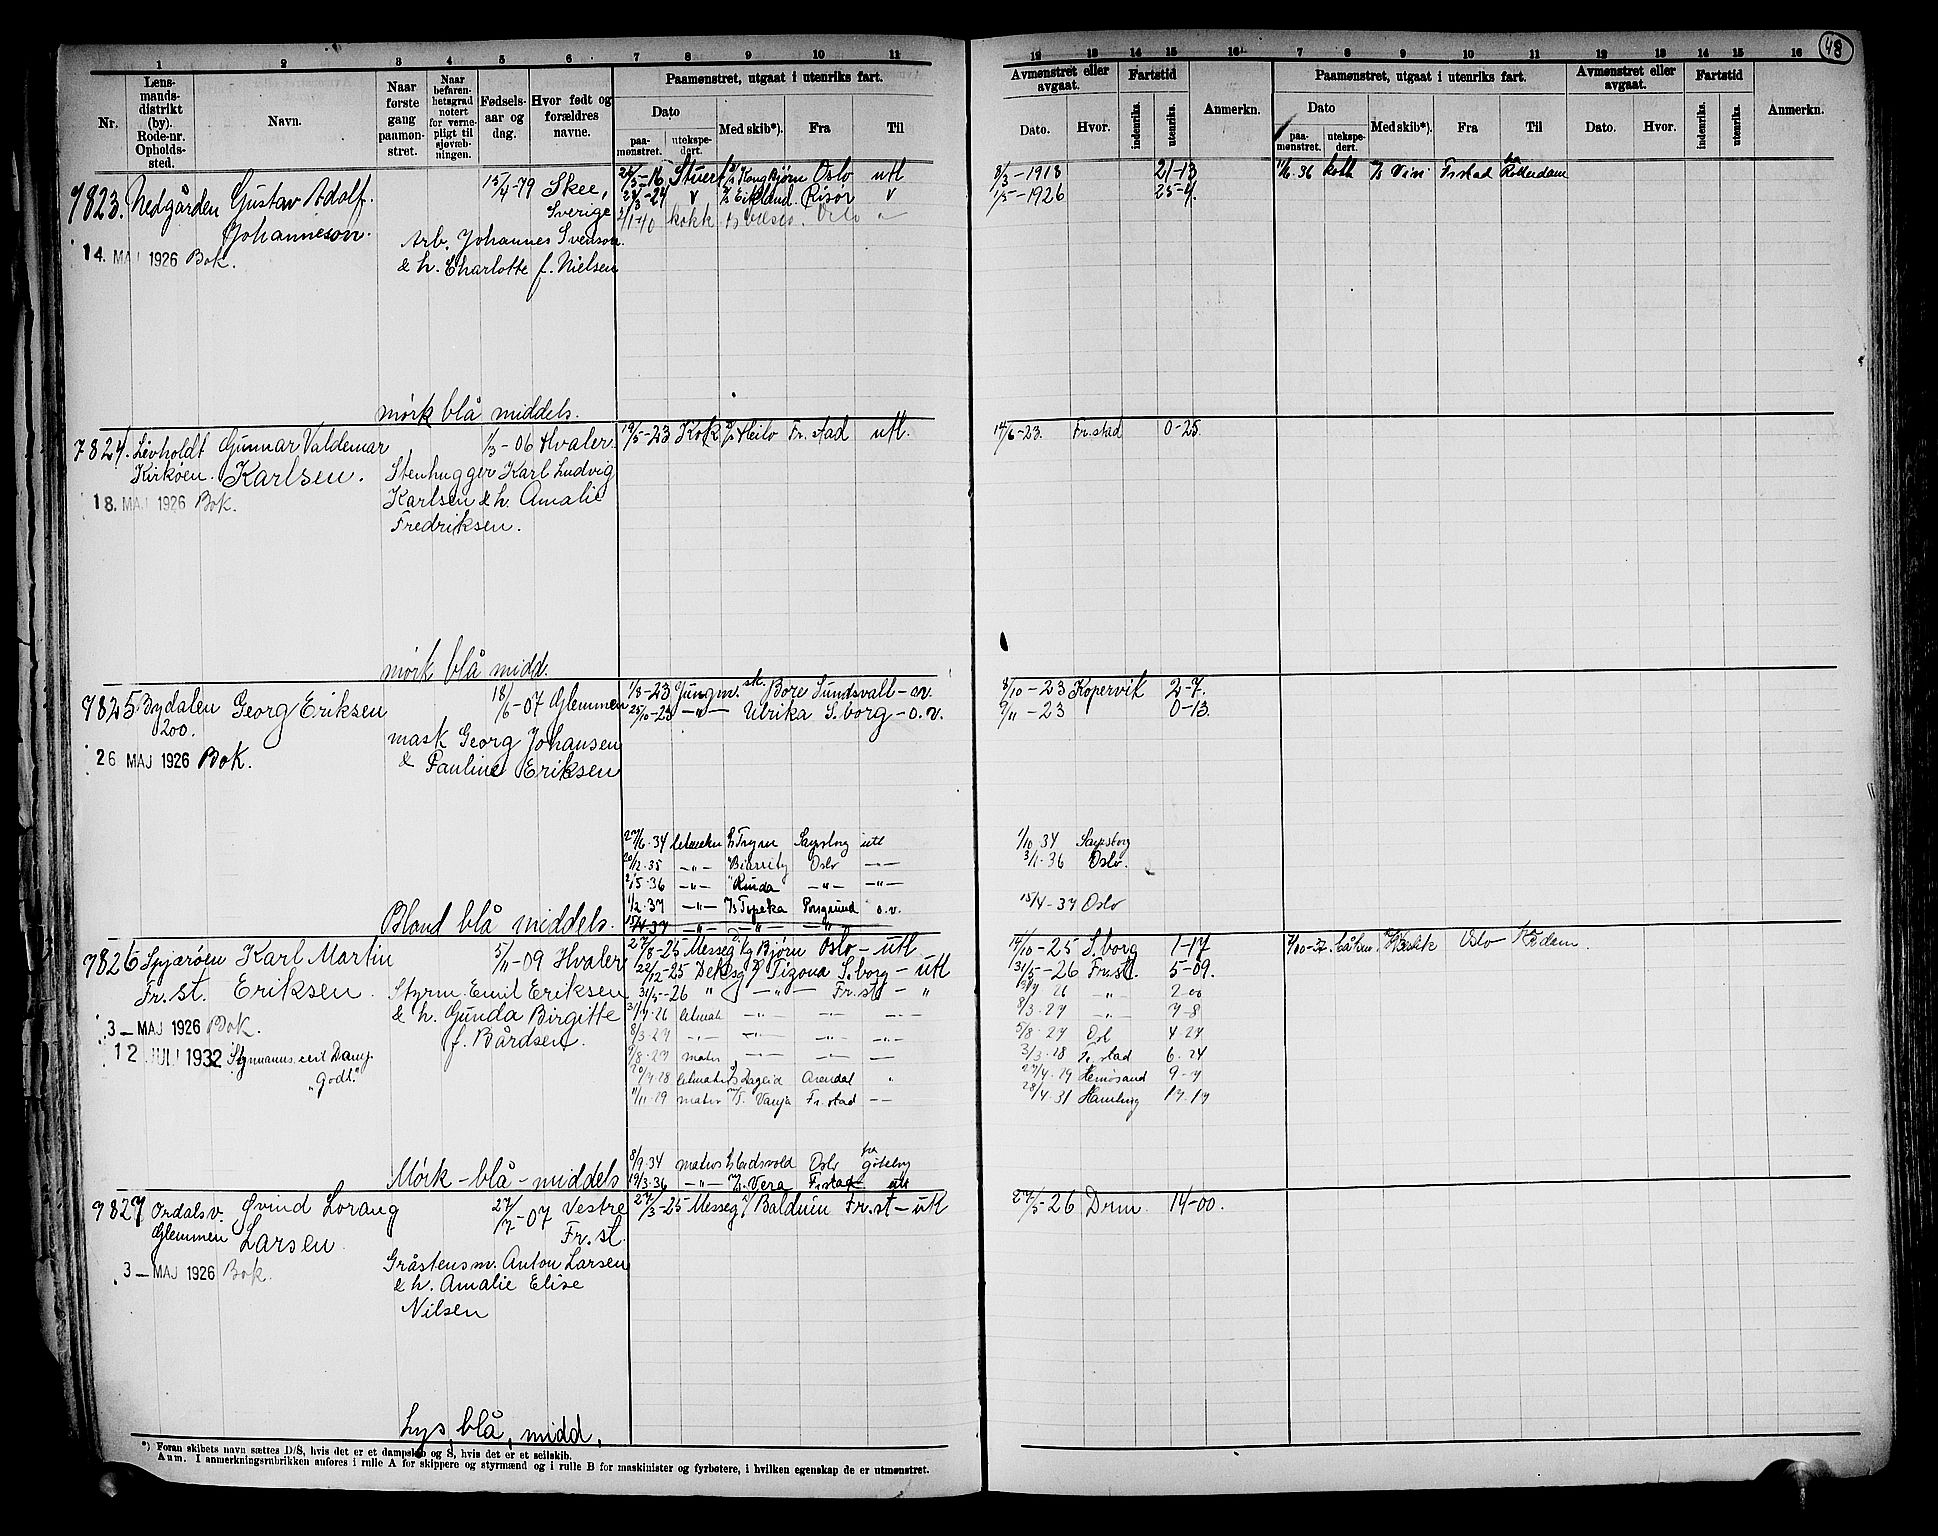 48
1 2 3 4 5 6 7 8 9 10 11
12 13 14 15 16 7 8 9 10 11 12 13 14 15 16
Nr.
Lens-
mands-
distrikt
(by).
Rode-nr.
Opholds-
sted.
Navn.
Naar
første
gang
paamøn-
stret.
Naar
befaren-
hetsgrad
notert
for verne-
pligt til
sjøvæb-
ningen.
Fødsels-
aar og
dag.
Hvor født og
forældres
navne.
Paamønstret, utgaat i utenriks fart.
Dato
paa-
mønstret.
utekspe-
dert.
Med skib*).
Fra
Til
Avmønstret eller
avgaat.
Dato.
Hvor.
Fartstid
indenriks.
utenriks.
Anmerkn.
Paamønstret, utgaat i utenriks fart.
Dato
paa-
mønstret.
utekspe-
dert.
Med skib*).
Fra
Til
Avmønstret eller
avgaat.
Dato.
Hvor.
Fartstid
indenriks.
utenriks.
Anmerkn.
7823. Nedgården Gustav Adolf
Johanneson.
14. MAJ 1926 Bok.
15/4-79 Skee,
Sverige
Arb. Johannes Svenson
& h. Charlotte f. Nielsen
mørk blå middels.
/5-16 Stuert Kong Bjørn Oslo utl
/3-24 v Eikland. Risør v
/1-40 kokk Oslo "
8/3-1918 21-13
1/5-1926 25-4.
/6.36 kokk Fr stad fra Rotterdam
7824. Levholdt Gunnar Valdemar
Kirkøen. Karlsen.
18. MAJ 1926 Bok.
1/3-06 Hvaler.
Stenhugger Karl Ludvig
Karlsen & h. Amalie
Fredriksen.
mørk blå midd.
19/5-23 Kok Heilo Fr. stad utl.
14/6-23. Fr. stad 0-25
7825 Bydalen Georg Eriksen
200.
26 MAJ 1926 Bok.
18/6-07 Glemmen
mask Georg Johansen
& Pauline Eriksen
Bland blå middels.
1/8-23 Jungm. sk. Bore Sundsvall-o.v.
25/10-23 -"- Ulrika S. borg-o.v.
8/10-23 Kopervik 2-7.
9/11-23 0-13.
27/6.34 letmatr Sarpsborg utl
20/12.35 -"- Biarritz Oslo -"-
2/5.36 -"- " Rinda -"- -"-
1/2.37 -"- Topeka Porsgrund o.v.
15/4.37 -"- -"- -"-
1/10 34 Sarpsborg
3/1-36 Oslo.
15/4-37 Oslo
7826 Spjærøen Karl Martin
Fr.st. Eriksen.
3-MAJ 1926 Bok.
12 JULI 1932 Styrmanns cert Damp.
"Godt."
5/11-09 Hvaler
Styrm. Emil Eriksen
& h. Gunda Birgitte
f. Bårdsen.
Mørk-blå-middels
27/8-25 Messeg Kg Bjørn Oslo-utl
22/12-25 Deksg Tizona S. borg-utl
31/5-26 " -"- Fr.st- "
31/7.26 letmatr -"- -"- -"-
8/3.27 -"- -"-
9/8.27 matr -"- -"- -"-
20/4.28 letmatr Arendal "
11/11.29 matr Vanja Fr.stad --
8/9.34 matros Eidsvold Oslo fra Göteborg
19/3.36 -"- Vera Fr.stad utl
14/10-25 S. borg 1-17
31/5-26 Fr.st. 5-09.
26 -"- 2.00
8/3.27 -"- 7-8
5/8.27 Osl 4.27
3/3.28 Fr stad 6.24
27/4.29 Hernøsand 9-7
28/4.31 Hamburg 17.17
7/10-37 Oslo
7827 Ordals v. Øvind Lorang
Glemmen Larsen.
3-MAJ 1926 Bok.
27/7-07 Vestre
Fr.st.
Gråstensm. Anton Larsen
& h. Amalie Elise
Nilsen
Lys, blå, midd,
27/3-25 Messeg Balduin Fr.st-utl
27/5-26 Drm. 14-00.
*) Foran skibets navn sættes D/S, hvis det er et dampskib og S, hvis det er et seilskib.
Anm. I anmerkningsrubrikken anføres i rulle A for skippere og styrmænd og i rulle B for maskinister og fyrbøtere, i hvilken egenskap de er utmønstret.